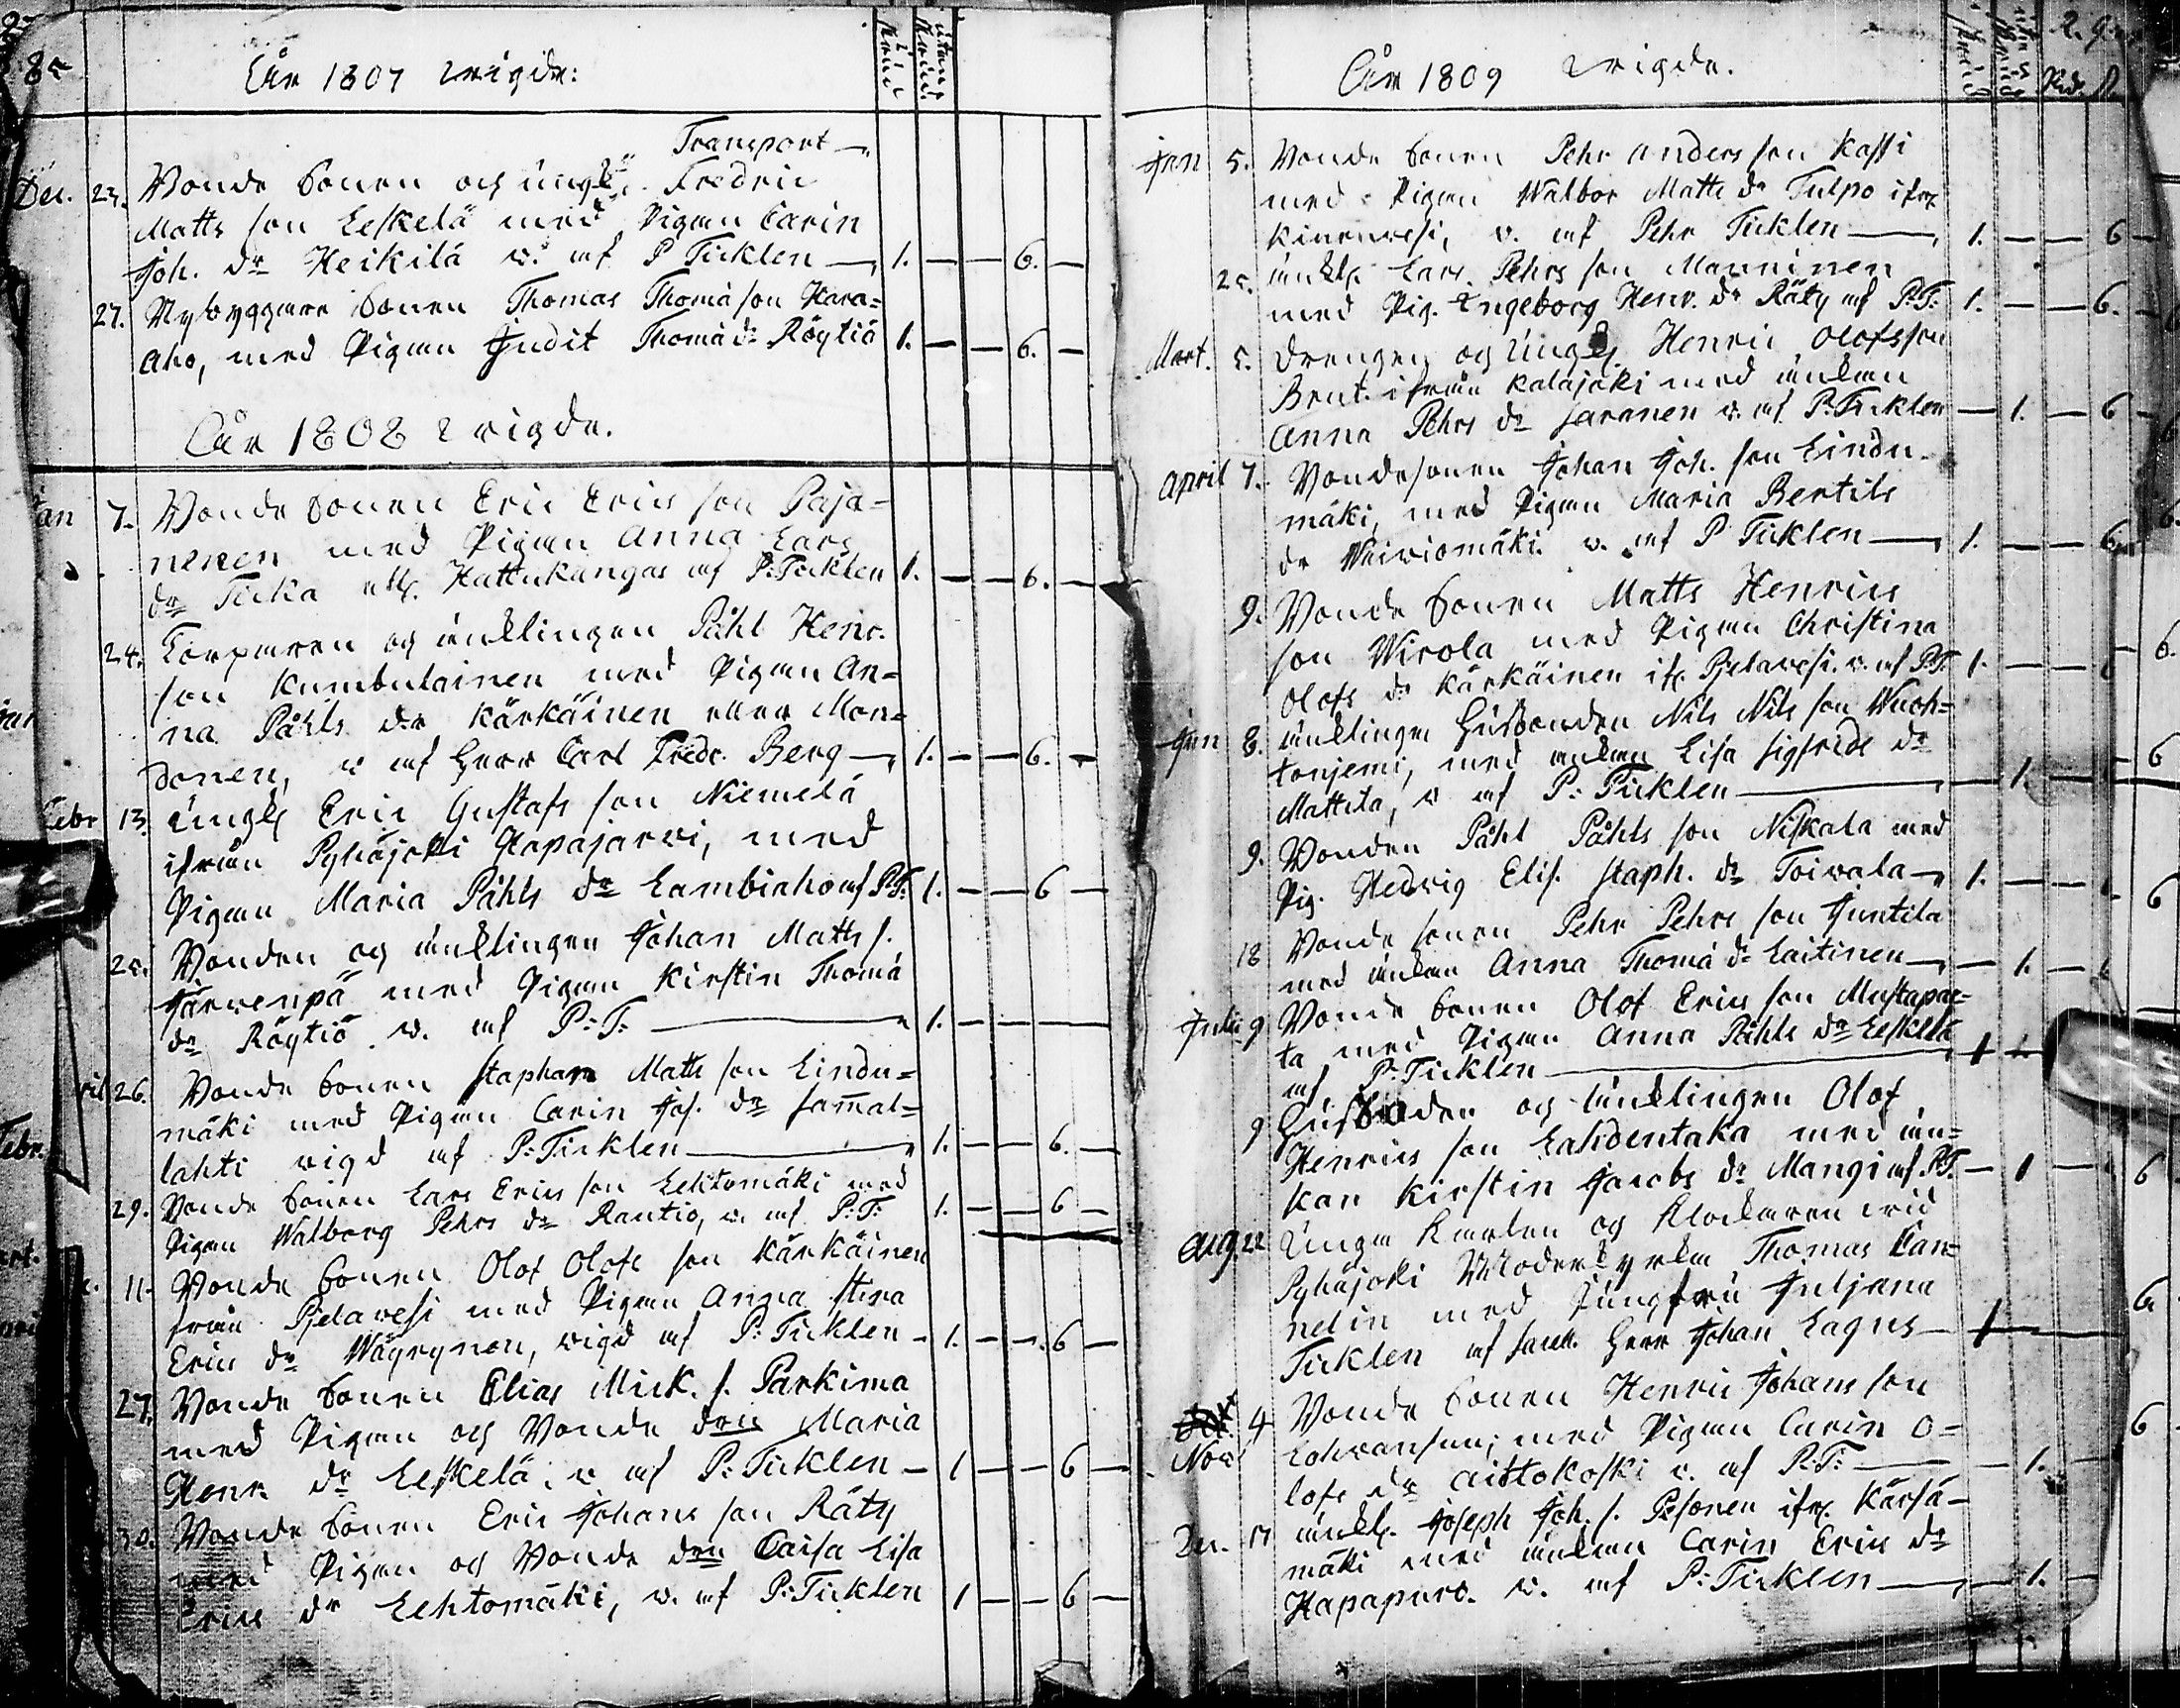 85
År 1807 Wigde:
i krona
utan krona
Transport —
Dec. 23. Bonde Sonen och ungk. Fredric
Matts son Leskelä med Pigan Carin
Joh. dr Heikilä v. af P Ticklen — 1. — — 6. —
27. Nybyggare Sonen Thomas Thomä son Kara=
aho, med Pigan Judit Thomä dr Röytiö 1. — — 6. —
År 1808 Wigde.
Jan 7. Bonde Sonen Eric Erics son Paja=
nenen med Pigan Anna Lars
dr Ticka ell. Kattukangas af P: Ticklen 1. — — 6. —
24. Torparen och änklingen Påhl Henr.
son Kumbulainen med Pigan An=
na Påhls dr Kärkäinen eller Mon=
donen, v af Herr Carl Fredr. Berg — 1. — — 6. —
Febr 13. Ungk Eric Gustafs son Niemelä
ifrån Pyhäjoki Haapajarvi, med
Pigan Maria Påhls dr Lambinho af P:T: 1. — — 6 —
25. Bonden och änklingen Johan Matts s.
Järvenpä med Pigan Kirstin Thomä
dr Röytiö v. af P:T: — 1. — — —
ril 26. Bonde Sonen Staphan Matts son Lindu=
mäki med Pigan Carin Jos. dr Samal=
lahti vigd af P: Ticklen — 1. — — 6. —
29. Bonde Sonen Lars Erics son Lehtomäki med
Pigan Walborg Pehrs dr Rautio, v. af P:T: 1. — — 6 —
11. Bonde Sonen Olof Olofs son Kärkäinen
från Pjelavesi med Pigan Anna Stina
Erics dr Wäyrynen, vigd af P: Ticklen — 1. — — 6 —
27. Bonde Sonen Elias Mick. s. Parkima
med Pigan och Bonde dren Maria
Henr. dr Leskelä, v af P: Ticklen — 1 — — 6 —
30. Bonde Sonen Eric Johans son Räty
med Pigan och Bonde dren Caisa Lisa
Erics dr Lehtomäki, v. af P: Ticklen 1 — — 6 —
År 1809 Wigde.
Jan 5. Bonde Sonen Pehr Anders son Kassi
med Pigan Walbor Matts dr Tulpo ifr.
Kiurevesi, v. af Pehr Ticklen — 1. — — 6 —
25. änkl. Lars Pehrs son Manninen
med Pig. Engeborg Henr. dr Räty af P:T: 1. — — 6. —
Mart. 5. Drengen och Ungk. Henric Olofsson
Brut. ifrån Kalajoki med änkan
Anna Pehrs dr Saranen v. af P: Ticklen — 1. — 6 —
April 7. Bondesonen Johan Joh. son Lindu-
mäki, med Pigan Maria Bertils
dr Weiviomäki v. af P Ticklen — 1. — — 6
9. Bonde Sonen Matts Henrics
son Wirola med Pigan Christina
Olofs dr Kärkäinen ifr. Pjelavesi. v. af P:T: 1. — — 6.
Jun 8. änklingen Husbonden Nils Nils son Wuoh=
tonjemi, med änkan Lisa Sigfrids dr
Mattila, v af P: Ticklen — — 1. — 6
9. Bonden Påhl Påhls son Niskala med
Pig. Hedvig Elis. Staph. dr Toivala — 1. — — 6
18 Bonde Sonen Pehr Pehrs son Juntila
med änkan Anna Thomä dr Laitinen — — 1. —
Julii 9 Bonde Sonen Olof Erics son Mustapar=
ta med Pigan Anna Påhls dr Leskelä
af P: Ticklen — 1
9 Husbonden och änklingen Olof
Henrics son Lahdentaka med än=
kan Kirstin Jacobs dr Mangi af P:T. — 1 — 6
Aug. 22 Unga Karlen och Klockaren vid
Pyhäjoki Moderkyrka Thomas Can=
nelin med Jungfru Juljana
Ticklen af Herr Johan Lagus — 1 — 6
Nov 4 Bonde Sonen Henric Johans son
med Pigan Carin O=
lofs dr Aittokoski v. af P:T: — — 1. — 6
Dec. 17 änkl. Joseph Joh. s. Pesonen ifr. Kärsä-
mäki med änkan Carin Erics dr
Hapapuro. v. af P: Ticklen — — 1.